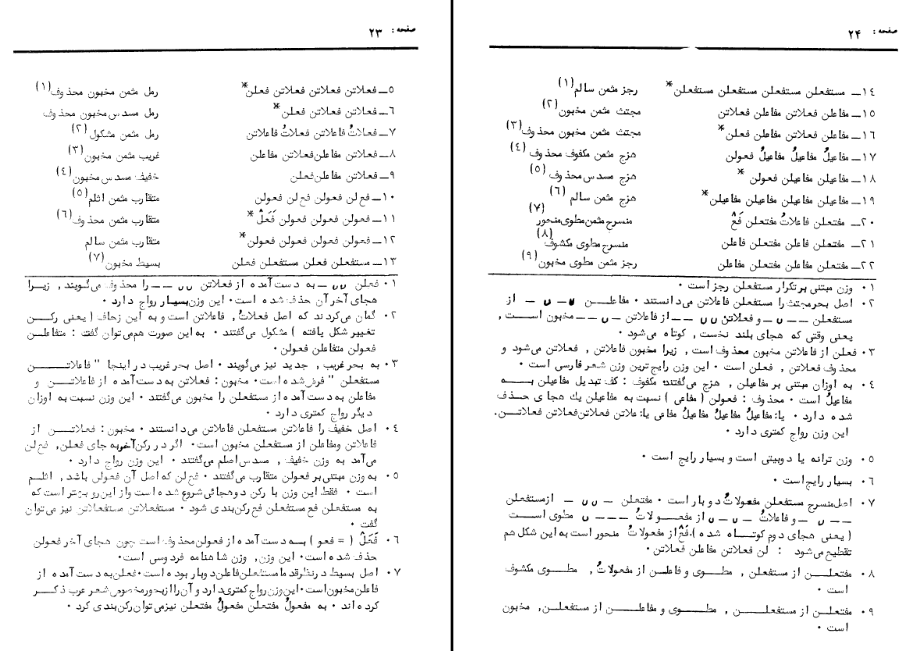 صفحه: ۲۳
۵ـ فعلاتن فعلاتن فعلاتن فعلن* رمل مثمن مخبون محذوف(۱)
۶ـ فعلاتن فعلاتن فعلن* رمل مسدس مخبون محذوف
۷ـ فعلاتُ فاعلاتن فعلاتُ فاعلاتن رمل مثمن مشکول(۲)
۸ـ فعلاتن فعلاتن مفاعلن غریب مثمن مخبون(۳)
۹ـ فعلاتن مفاعلن فعلن خفیف مسدس مخبون(۴)
۱۰ـ فع لن فعولن فع لن فعولن متقارب مثمن اثلم(۵)
۱۱ـ فعولن فعولن فعولن فَعَلْ* متقارب مثمن محذوف(۶)
۱۲ـ فعولن فعولن فعولن فعولن* متقارب مثمن سالم
۱۳ـ مستفعلن فعلن مستفعلن فعلن بسیط مخبون(۷)
۱۰ فعلن ں ں ـ به دست آمده از فعلاتن ں ں ـ ـ را محذوف می‌گویند, زیرا
هجای آخر آن حذف شده است۰ این وزن بسیار رواج دارد ۰
۲۰ گمان می‌کردند که اصل فعلاتُ, فاعلاتن است و به این زحاف (یعنی رکن
تغییر شکل یافته) مشکول می‌گفتند ۰ به این صورت هم می‌توان گفت: متفاعلن
فعولن متفاعلن فعولن ۰
۳۰ به بحر غریب, جدید نیز می‌گویند۰ اصل بحر غریب در اینجا "فاعلاتن
مستفعلن" فرض شده است۰ مخبون: فعلاتن به دست آمده از فاعلاتن و
مفاعلن به دست آمده از مستفعلن را مخبون می‌گفتند ۰ این وزن نسبت به اوزان
دیگر رواج کمتری دارد ۰
۴۰ اصل خفیف را فاعلاتن مستفعلن فاعلاتن می‌دانستند ۰ مخبون: فعلاتن از
فاعلاتن ومفاعلن از مستفعلن مخبون است۰ اگر در رکن آخر به جای فعلن, فع لن
می‌آمد به وزن خفیف, مسدس اصلم می‌گفتند ۰ این وزن رواج دارد ۰
۵۰ به وزن مبتنی بر فعولن متقارب می‌گفتند ۰ فع لن که اصل آن فعولن باشد, اثلم
است ۰ فقط این وزن با رکن دوهجائی شروع شده است واز این رو بهتر است که
به مستفعلن فع مستفعلن فع رکن‌بندی شود ۰ مستفعلاتن مستفعلاتن نیز می‌توان
گفت ۰
۶۰ فَعَلْ (= فعو) به دست آمده از فعولن محذوف است چون هجای آخر فعولن
حذف شده است۰ این وزن, وزن شاهنامه فردوسی است ۰
۷۰ اصل بسیط در نظر قدما مستفعلن فاعلن دوبار بوده است۰ فعلن به دست آمده از
فاعلن مخبون است۰ این وزن رواج کمتری دارد و آن را از بحور مخصوص شعر عرب ذکر
کرده‌اند ۰ به مفعولُ مفتعلن مفعولُ مفتعلن نیز می‌توان رکن‌بندی کرد ۰
صفحه: ۲۴
۱۴ـ مستفعلن مستفعلن مستفعلن مستفعلن* رجز مثمن سالم(۱)
۱۵ـ مفاعلن فعلاتن مفاعلن فعلاتن مجتث مثمن مخبون(۲)
۱۶ـ مفاعلن فعلاتن مفاعلن فعلن* مجتث مثمن مخبون محذوف(۳)
۱۷ـ مفاعیلُ مفاعیلُ مفاعیلُ فعولن هزج مثمن مکفوف محذوف(۴)
۱۸ـ مفاعیلن مفاعیلن فعولن* هزج مسدس محذوف(۵)
۱۹ـ مفاعیلن مفاعیلن مفاعیلن مفاعیلن* هزج مثمن سالم(۶)
۲۰ـ مفتعلن فاعلاتُ مفتعلن فَعْ منسرح مثمن مطوی منحور(۷)
۲۱ـ مفتعلن فاعلن مفتعلن فاعلن منسرح مطوی مکشوف(۸)
۲۲ـ مفتعلن مفاعلن مفتعلن مفاعلن رجز مثمن مطوی مخبون(۹)
۱۰ وزن مبتنی بر تکرار مستفعلن رجز است ۰
۲۰ اصل بحر مجتث را مستفعلن فاعلاتن می‌دانستند ۰ مفاعلن ں ـ ں ـ از
مستفعلن ـ ـ ں ـ و فعلاتن ں ں ـ ـ از فاعلاتن ـ ں ـ ـ مخبون است,
یعنی وقتی که هجای بلند نخست, کوتاه می‌شود ۰
۳۰ فعلن از فاعلاتن مخبون محذوف است, زیرا مخبون فاعلاتن, فعلاتن می‌شود و
محذوف فعلاتن, فعلن است ۰ این وزن رایج ترین وزن شعر فارسی است ۰
۴۰ به اوزان مبتنی بر مفاعیلن, هزج می‌گفتند۰ مکفوف: کف تبدیل مفاعیلن به
مفاعیلُ است ۰ محذوف: فعولن (مفاعی) نسبت به مفاعیلن یک هجای حذف
شده دارد ۰ یا: مفاعیلُ مفاعیلُ مفاعیلُ مفاعی یا: علاتن فعلاتن فعلاتن فعلاتن۰
این وزن رواج کمتری دارد ۰
۵۰ وزن ترانه یا دوبیتی است و بسیار رایج است ۰
۶۰ بسیار رایج است ۰
۷۰ اصل منسرح مستفعلن مفعولاتُ دوبار است ۰ مفتعلن ـ ں ں ـ از مستفعلن
ـ ـ ں ـ و فاعلاتُ ـ ں ـ ں از مفعولاتُ ـ ـ ـ ں مطوی است
(یعنی هجای دوم کوتاه شده) فَعْ از مفعولاتُ منحور است به این شکل هم
تقطیع می‌شود: لن فعلاتن مفاعلن فعلاتن۰
۸۰ مفتعلن از مستفعلن, مطوی و فاعلن از مفعولاتُ, مطوی مکشوف
است ۰
۹۰ مفتعلن از مستفعلن, مطوی و مفاعلن از مستفعلن, مخبون
است ۰